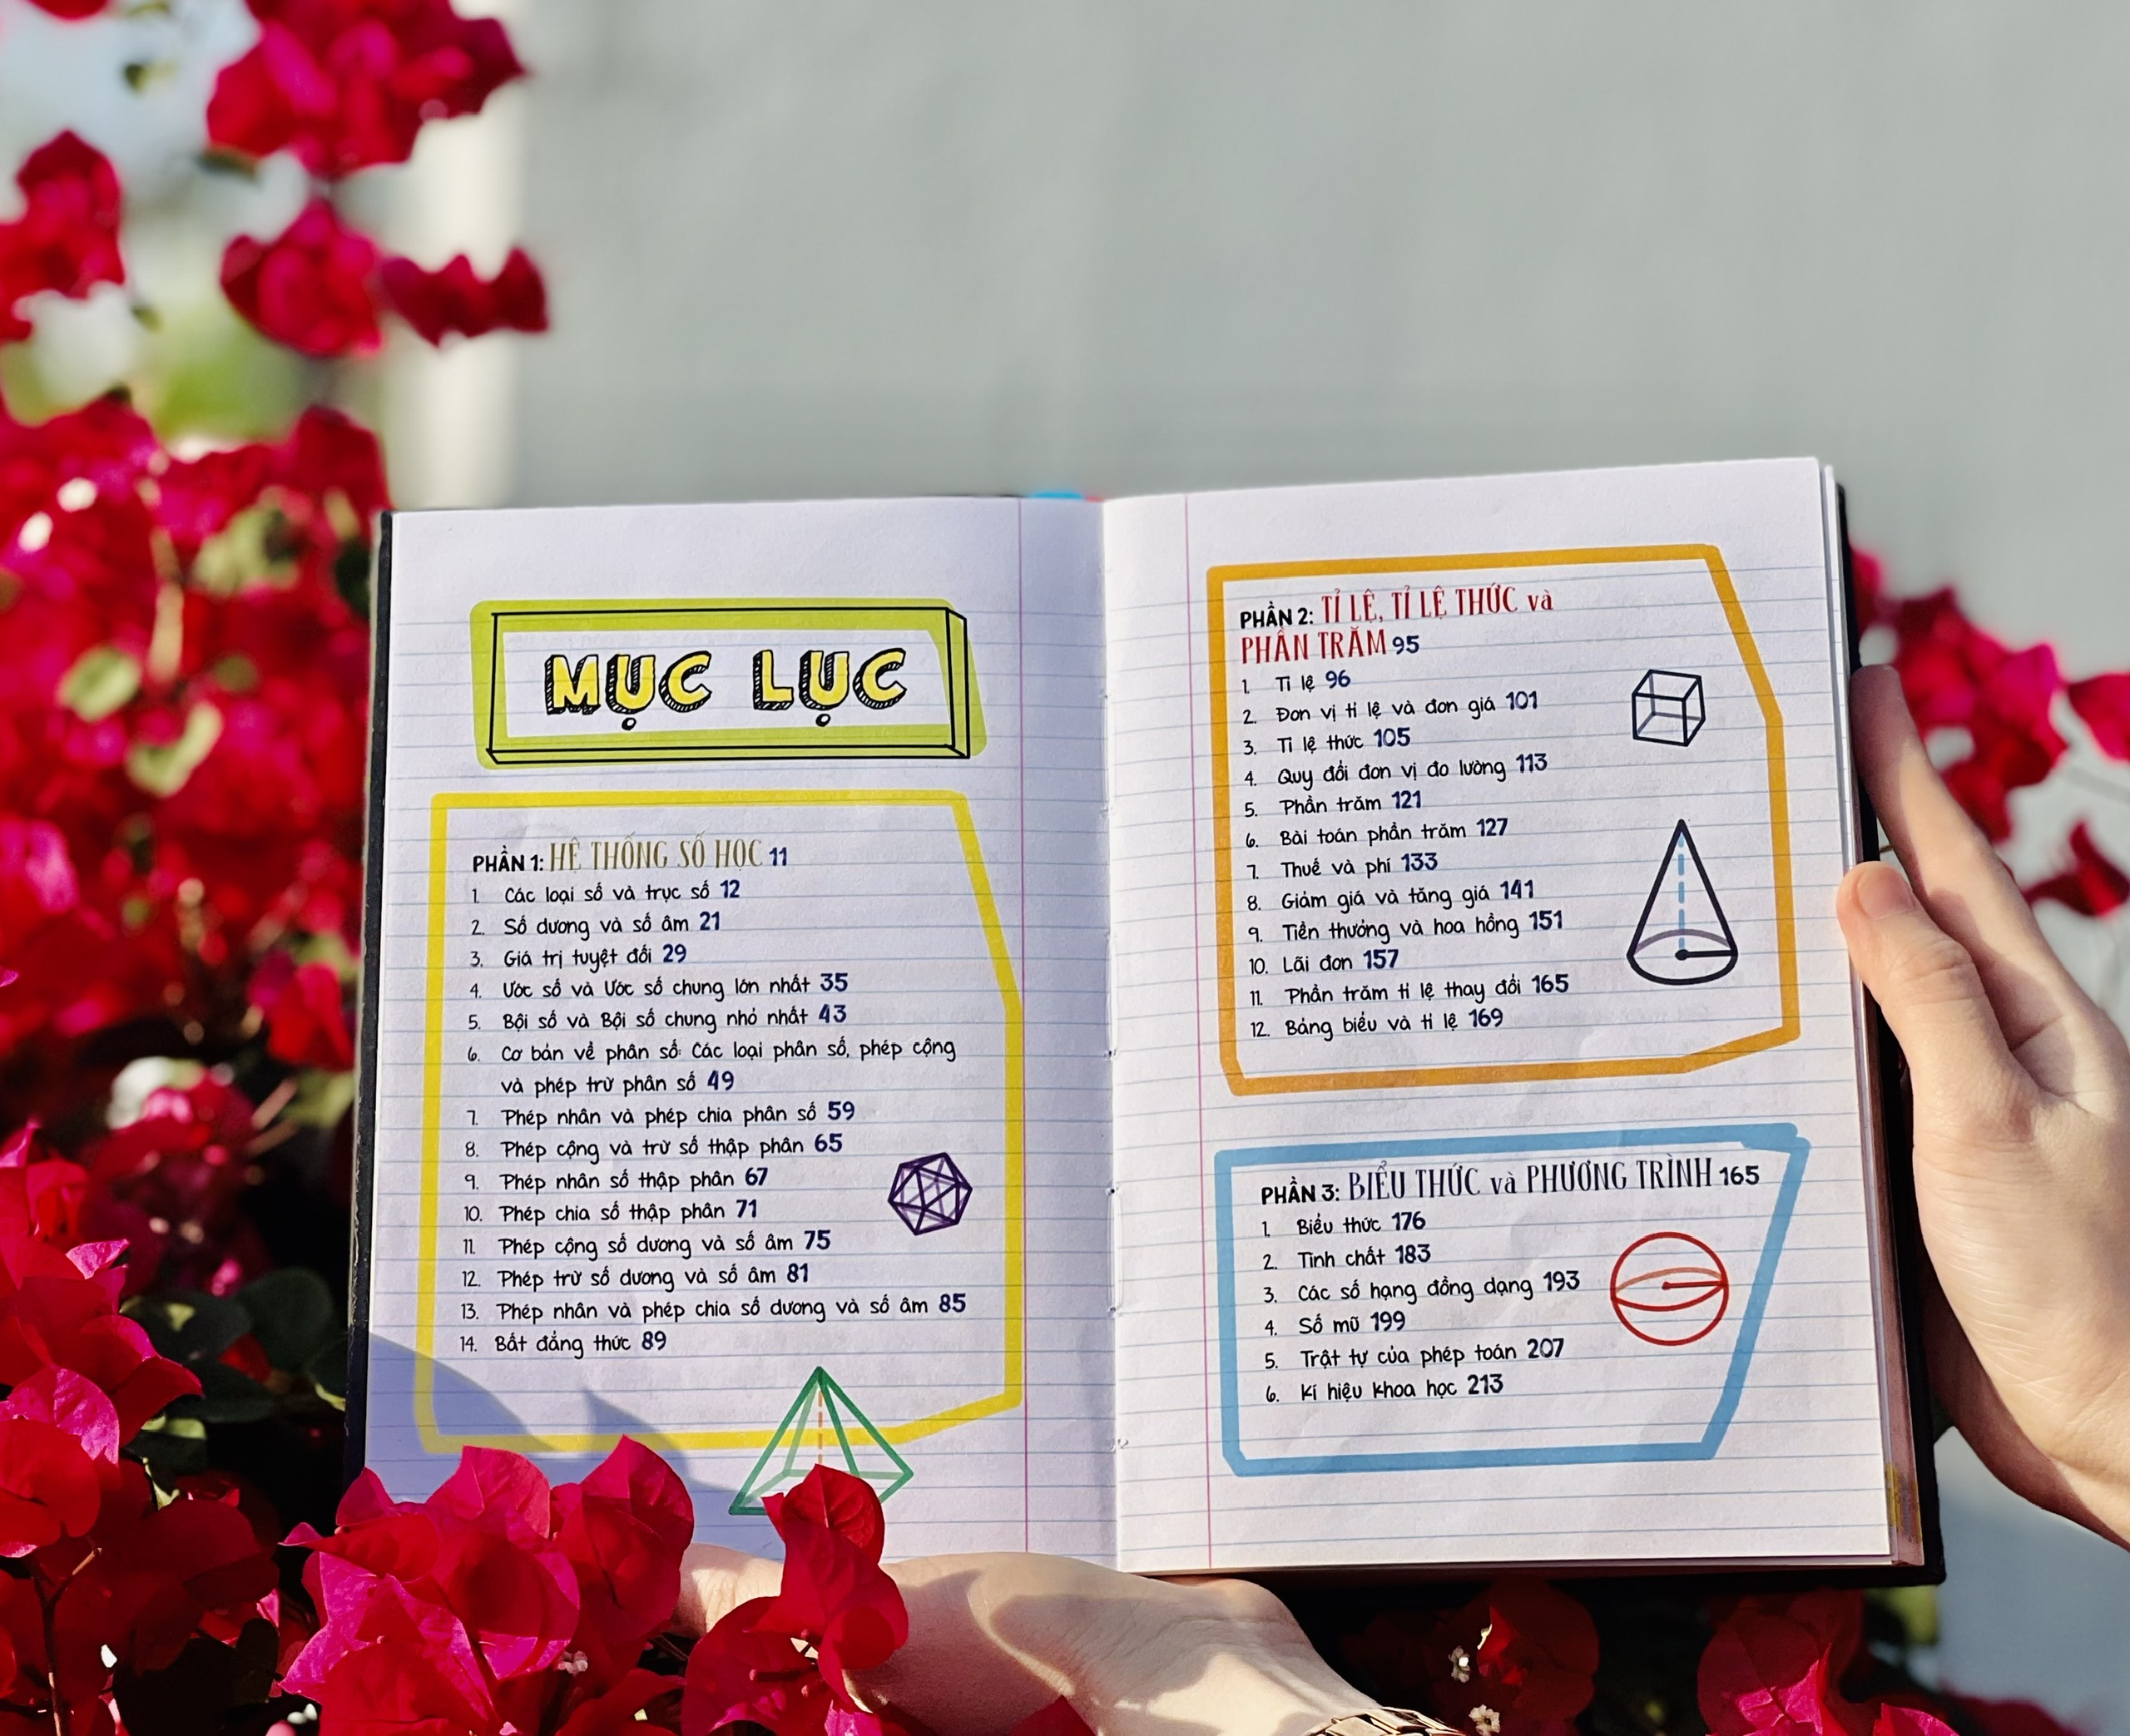 MỤC LỤC
PHẦN 1: HỆ THỐNG SỐ HỌC 11
1. Các loại số và trục số 12
2. Số dương và số âm 21
3. Giá trị tuyệt đối 29
4. Ước số và Ước số chung lớn nhất 35
5. Bội số và Bội số chung nhỏ nhất 43
6. Cơ bản về phân số: Các loại phân số, phép cộng
và phép trừ phân số 49
7. Phép nhân và phép chia phân số 59
8. Phép cộng và trừ số thập phân 65
9. Phép nhân số thập phân 67
10. Phép chia số thập phân 71
11. Phép cộng số dương và số âm 75
12. Phép trừ số dương và số âm 81
13. Phép nhân và phép chia số dương và số âm 85
14. Bất đẳng thức 89
PHẦN 2: TỈ LỆ, TỈ LỆ THỨC và
PHẦN TRĂM 95
1. Tỉ lệ 96
2. Đơn vị tỉ lệ và đơn giá 101
3. Tỉ lệ thức 105
4. Quy đổi đơn vị đo lường 113
5. Phần trăm 121
6. Bài toán phần trăm 127
7. Thuế và phí 133
8. Giảm giá và tăng giá 141
9. Tiền thưởng và hoa hồng 151
10. Lãi đơn 157
11. Phần trăm tỉ lệ thay đổi 165
12. Bảng biểu và tỉ lệ 169
PHẦN 3: BIỂU THỨC và PHƯƠNG TRÌNH 165
1. Biểu thức 176
2. Tính chất 183
3. Các số hạng đồng dạng 193
4. Số mũ 199
5. Trật tự của phép toán 207
6. Kí hiệu khoa học 213